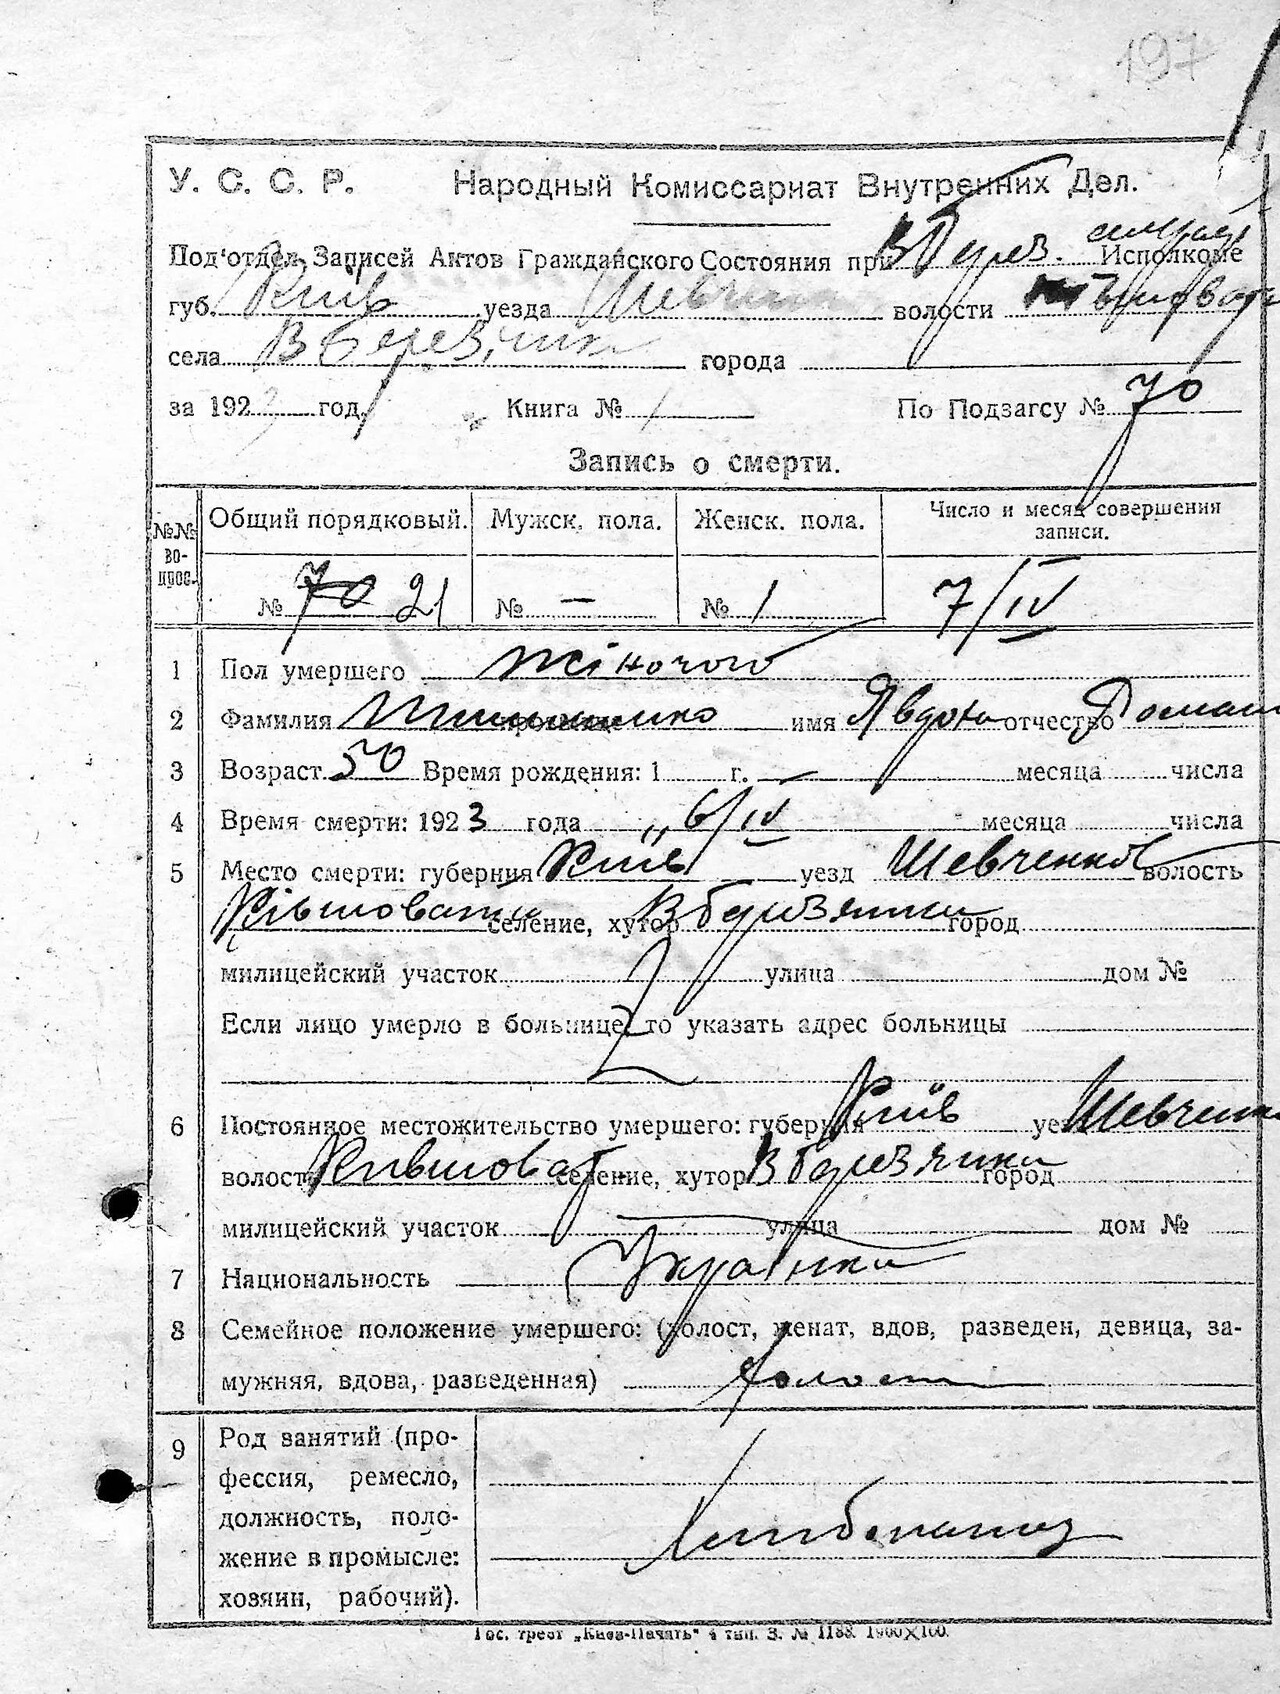 197
У. С. С. Р. Народный Комиссариат Внутренних Дел.
Под'отдел Записей Актов Гражданского Состояния при В Берез. Исполкоме
губ. Київ уезда Шевченк волости
села В Березянка города
за 1923 год. Книга № 1 По Подзагсу № 70
Запись о смерти.
№№ вопрос. Общий порядковый. Мужск. пола. Женск. пола. Число и месяц совершения записи.
№ 70 21 № — № 1 7/IV
1 Пол умершего жіночого
2 Фамилия имя Явдоха отчество Роман
3 Возраст 50 Время рождения: 1 г. — месяца числа
4 Время смерти: 1923 года „6/IV месяца числа
5 Место смерти: губерния Київ уезд Шевченков волость
Ківшовати селение, хутор В Березянка город
милицейский участок улица дом №
Если лицо умерло в больнице, то указать адрес больницы
6 Постоянное местожительство умершего: губерния Київ уезд Шевченк
волость Кившоват. селение, хутор В Березянка город
милицейский участок улица дом №
7 Национальность Українка
8 Семейное положение умершего: (холост, женат, вдов, разведен, девица, за-
мужняя, вдова, разведенная) холост
9 Род занятий (про-
фессия, ремесло,
должность, поло-
жение в промысле:
хозяин, рабочий).
Хлібопашец
Гос. трест „Киев-Печать" 4 тип. З. № 1188. 1900X100.